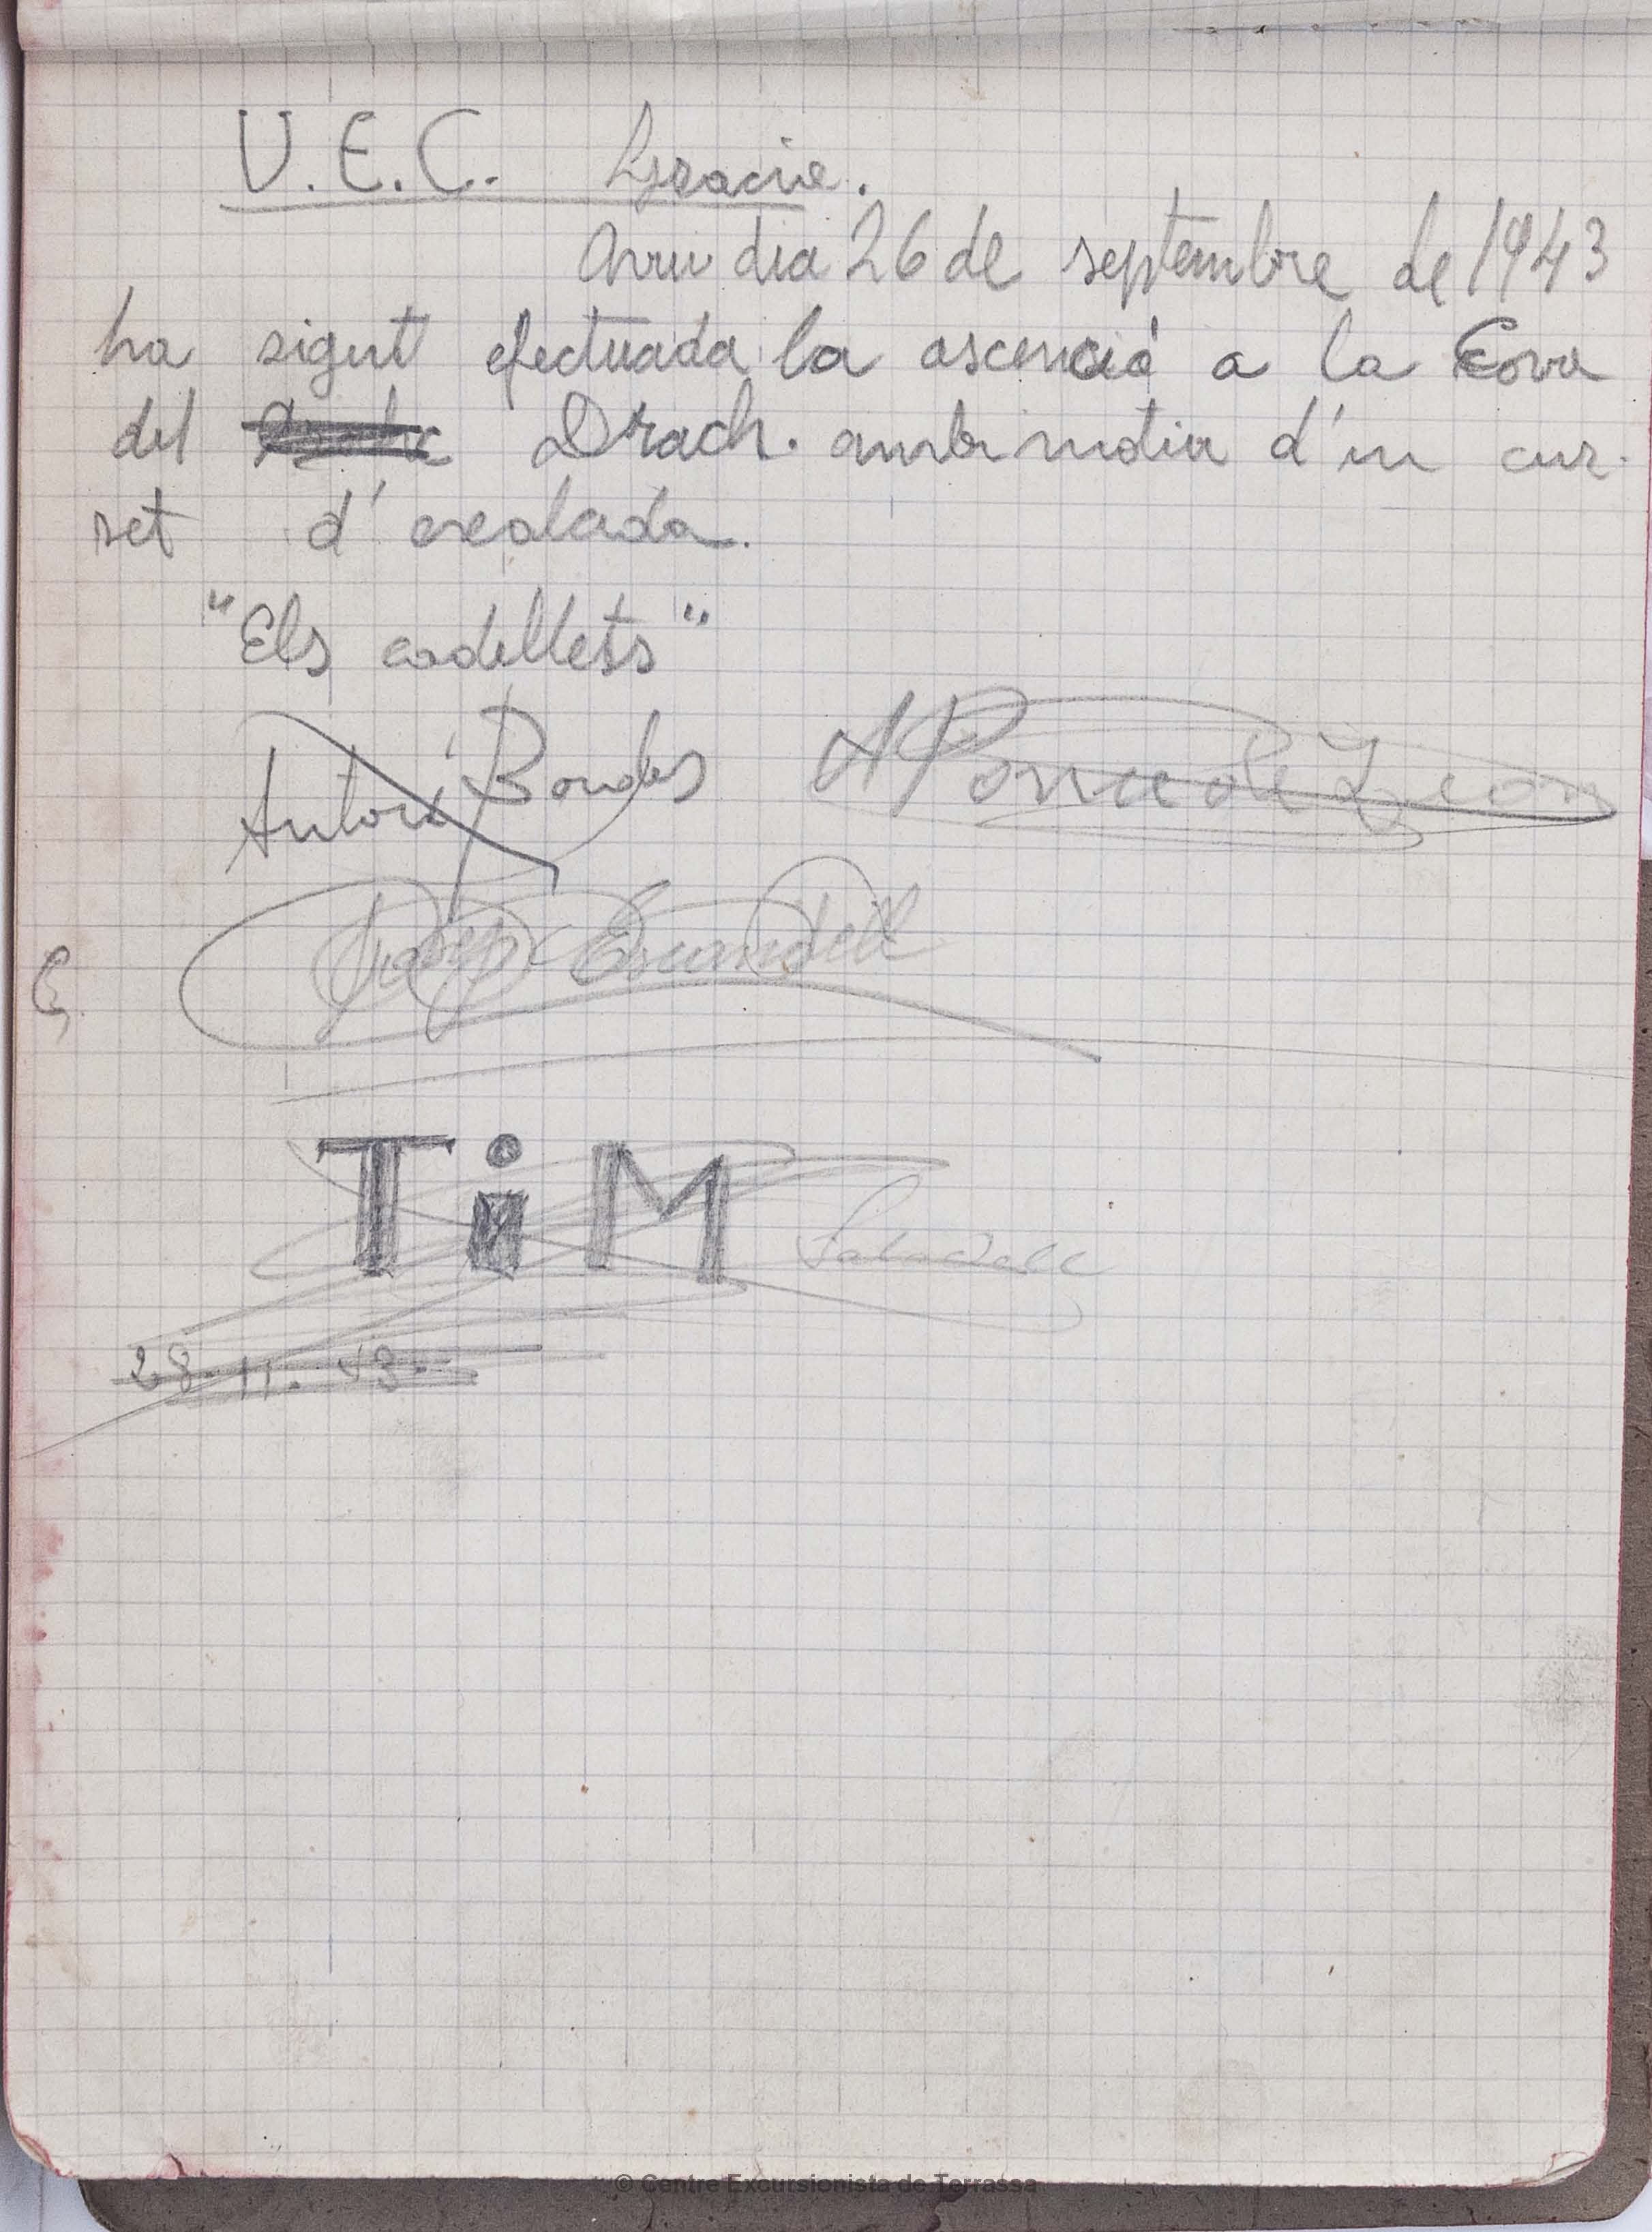 U.E.C. Gracia.
Avui dia 26 de septembre de 1943
ha sigut efectuada la ascenció a la Cova
del Drach. amb motiu d'un cur-
set d'escalada.
"Els cadellets"
Antoni Bordes A Ponce de Leon
Josep Escandell
TiM Sabadell
28-11-43-
© Centre Excursionista de Terrassa